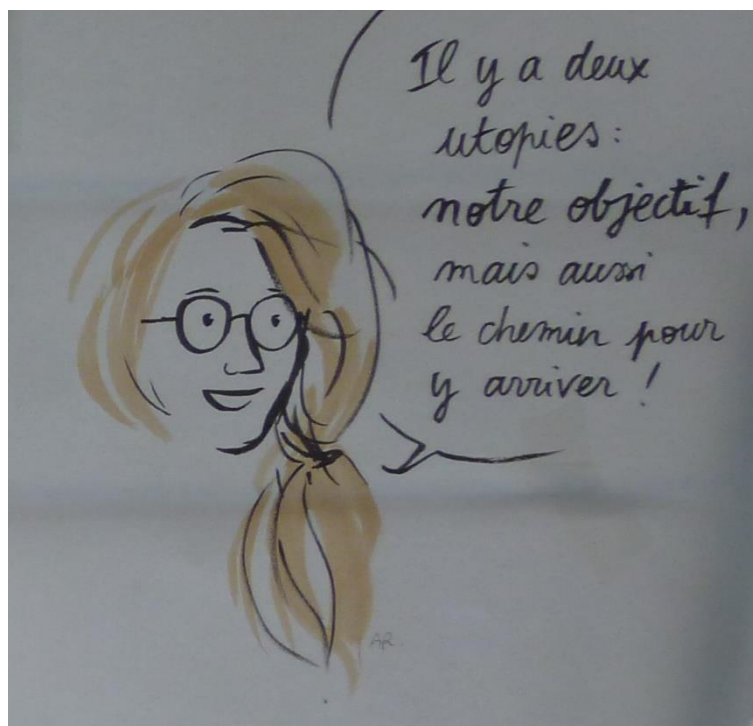 Il y a deux
utopies :
notre objectif,
mais aussi
le chemin pour
y arriver !
AR.